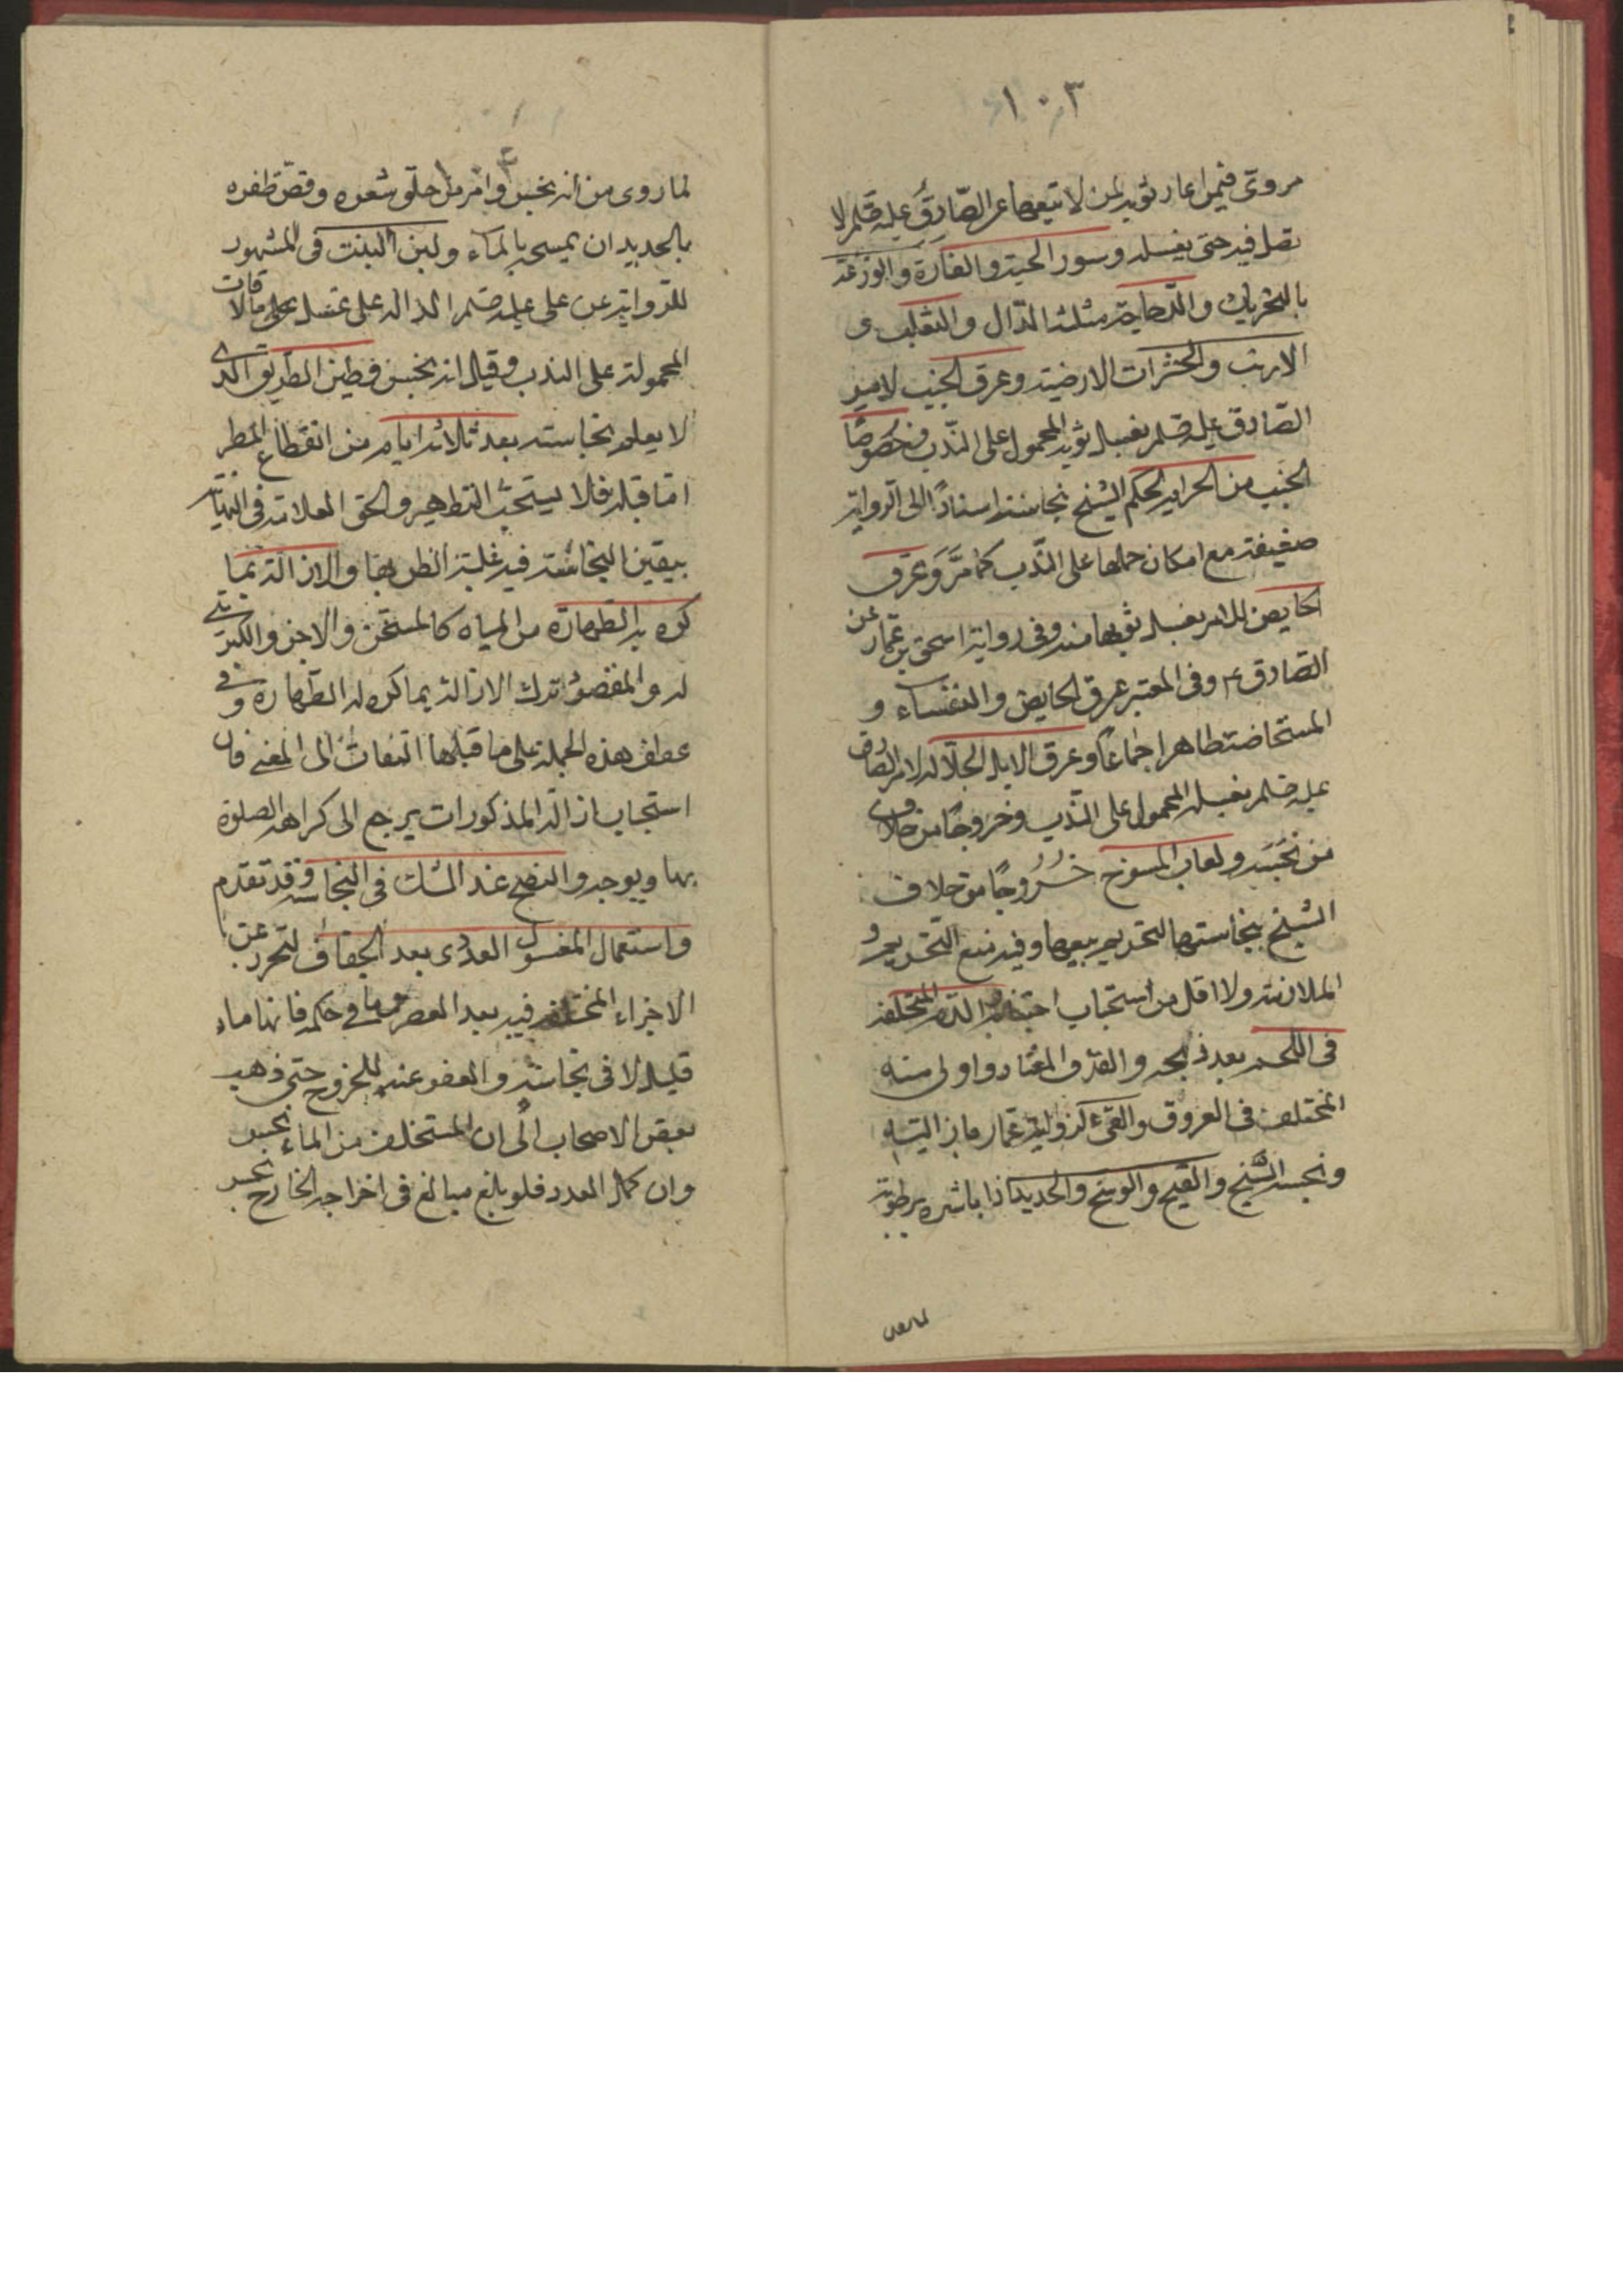 ١٠٣
مروىّ فيمن اعار ثوبه لمن لا يتبعها عن الصّادق عليه صلم لا
تصل فيه حتى يغسله وسور الحية والفارة والوزغة
بالتحريك والدجاجة مثلثة الدّال والثعلب و
الارنب والحشرات الارضية وعرق الجنب لامر
الصّادق عليه صلم بغسل ثوبه المحمول على النّدب وخصوصًا
الجنب من الحرام لحكم الشيخ بنجاسته اسنادًا الى الرواية
ضعيفة مع امكان حملها على النّدب كما مَرَّ وعرق
الحايض للامر بغسل ثوبها منه وفى رواية اسحق بن عمّار عن
الصّادق ع وفى المعتبر عرق الحايض والنفساء و
المستحاضة طاهر اجماعًا وعرق الابل الجلّالة لامر الصادق
عليه صلم بغسله المحمول على النّدب وخروجًا من خلاف
من نجسه ولعاب المسوخ خُرُوجًا من خلاف
الشيخ بنجاستها لتحريم بيعها وفيه منع التحريم و
الملازمة ولا اقل من استحباب اجتنابه والدم المتخلف
فى اللحم بعد ذبحه والقذف المعتاد واولى منه
المختلف فى العروق والقىء لرواية عمار
ونجسه الشيخ والقيح والوسخ والحديد اذا باشره برطوبة
لما روى
لما روى من انه نجس وامر من حلق شعره وقص ظفره
بالحديد ان يمسحه بالماء ولبن البنت فى المشهور
للرواية عن على عليه صلم الدالة على غسل
المحمولة على الندب وقيل انه نجس وطين الطريق الذى
لا يعلم نجاسته بعد ثلاثة ايام من انقطاع المطر
امّا قبله فلا يستحب التطهير والحق العلامة فى النهاية
بيقين النجاسة فيه غلبة الظن بها والازالة بما
كره به الطهارة من المياه كالمسخن والاجن والكبريتى
له والمقصود ترك الازالة بما كره له الطهارة وفى
عطف هذه الجملة على ما قبلها التفات الى المعنى فان
استحباب ازالة المذكورات يرجع الى كراهة الصلوة
بها ويوجد والنضح عند الشك فى النجاسة وقد تقدم
واستعمال المغسول العددى بعد الجفاف لتجرد عن
الاجزاء المتخلفة فيه بعد العصر وما فى حكمه فانها ماء
قليل لاقى نجاسة والعفو عنه للحرج حتى ذهب
بعض الاصحاب الى ان المستخلف من الماء نجس
وان كمل العدد فلو بالغ مبالغ فى اخراجه الخارج نجس